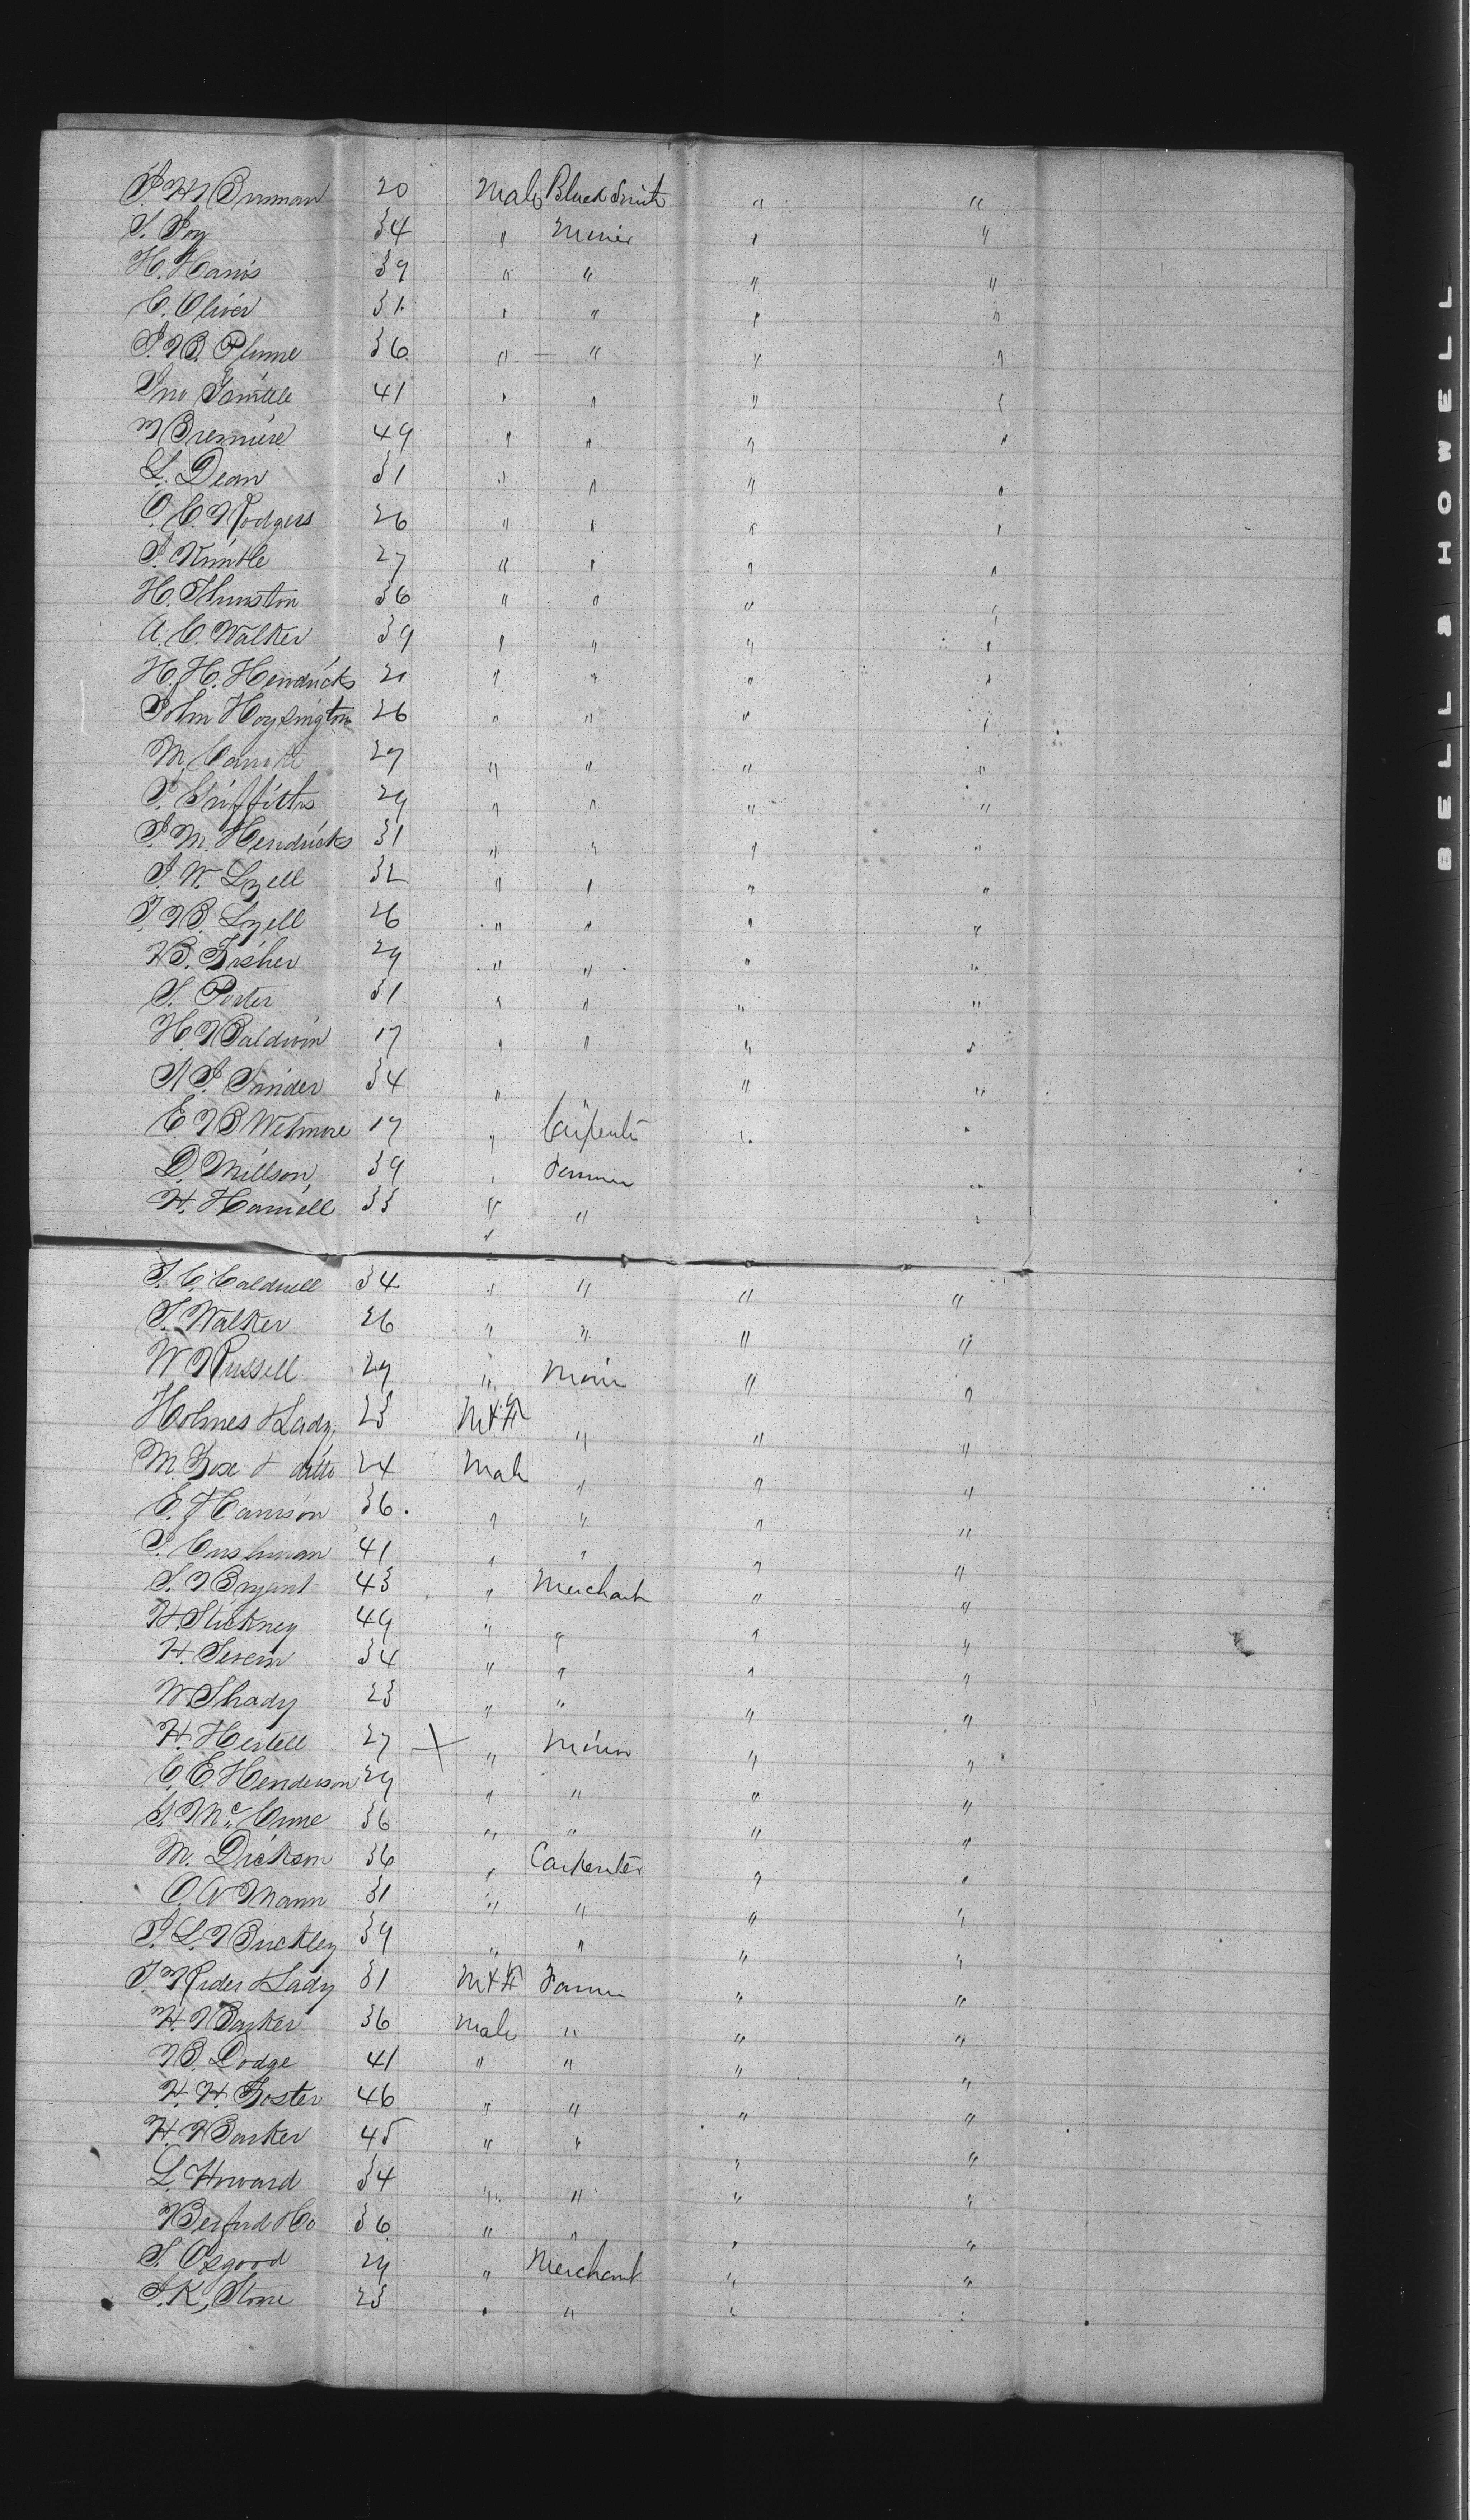 20 Male Black Smith " "
S. Foy 34 " Miner " "
H. Harris 39 " " " "
C. Oliver 31 " " " "
J. B. Plume 36 " " " "
Jno 41 " " " "
49 " " " "
L. Dean 31 " " " "
O. C. Rodgers 26 " " " "
J. Kimble 27 " " " "
H. Thurston 36 " " " "
A. C. Walker 39 " " " "
H. H. Hendricks 21 " " " "
John Hoysington 26 " " " "
M. 27 " " " "
J. Griffiths 29 " " " "
J. M. Hendricks 31 " " " "
J. W. Lyell 32 " " " "
J. B. Lyell 26 " " " "
B. Fisher 29 " " " "
S. Porter 31 " " " "
H. Baldwin 17 " " " "
34 " " " "
E. B Wetmore 17 " " "
D. Millson, 39 " Farmer "
H. 33 " " "
J. C. Caldwell 34 " " " "
S. Walker 26 " " " "
W Russell 29 " " "
Holmes & Lady, 23 M & F " " "
M. & ditto 24 Male " " "
E. Harrison 36. " " " "
J. Cushman 41 " " " "
S. Bryant 43 " Merchant " "
H. Stickney 49 " " " "
H. 34 " " " "
W. Shady 23 " " " "
H. Hertell 27 X " " "
C. E. Henderson 29 " " " "
Mc 36 " " " "
M. Dickson 36 " Carpenter " "
O. A Mann 31 " " " "
J. L. Buckley 39 " " " "
J. Rider & Lady 31 M & F Farmer " "
H. Barker 36 Male " " "
B. Dodge 41 " " " "
H. H. Foster 46 " " " "
H. Barker 45 " " " "
L. Howard 34 " " " "
36 " " " "
S. Osgood 29 " Merchant " "
J. K. Stone 23 " " " "
BELL & HOWELL